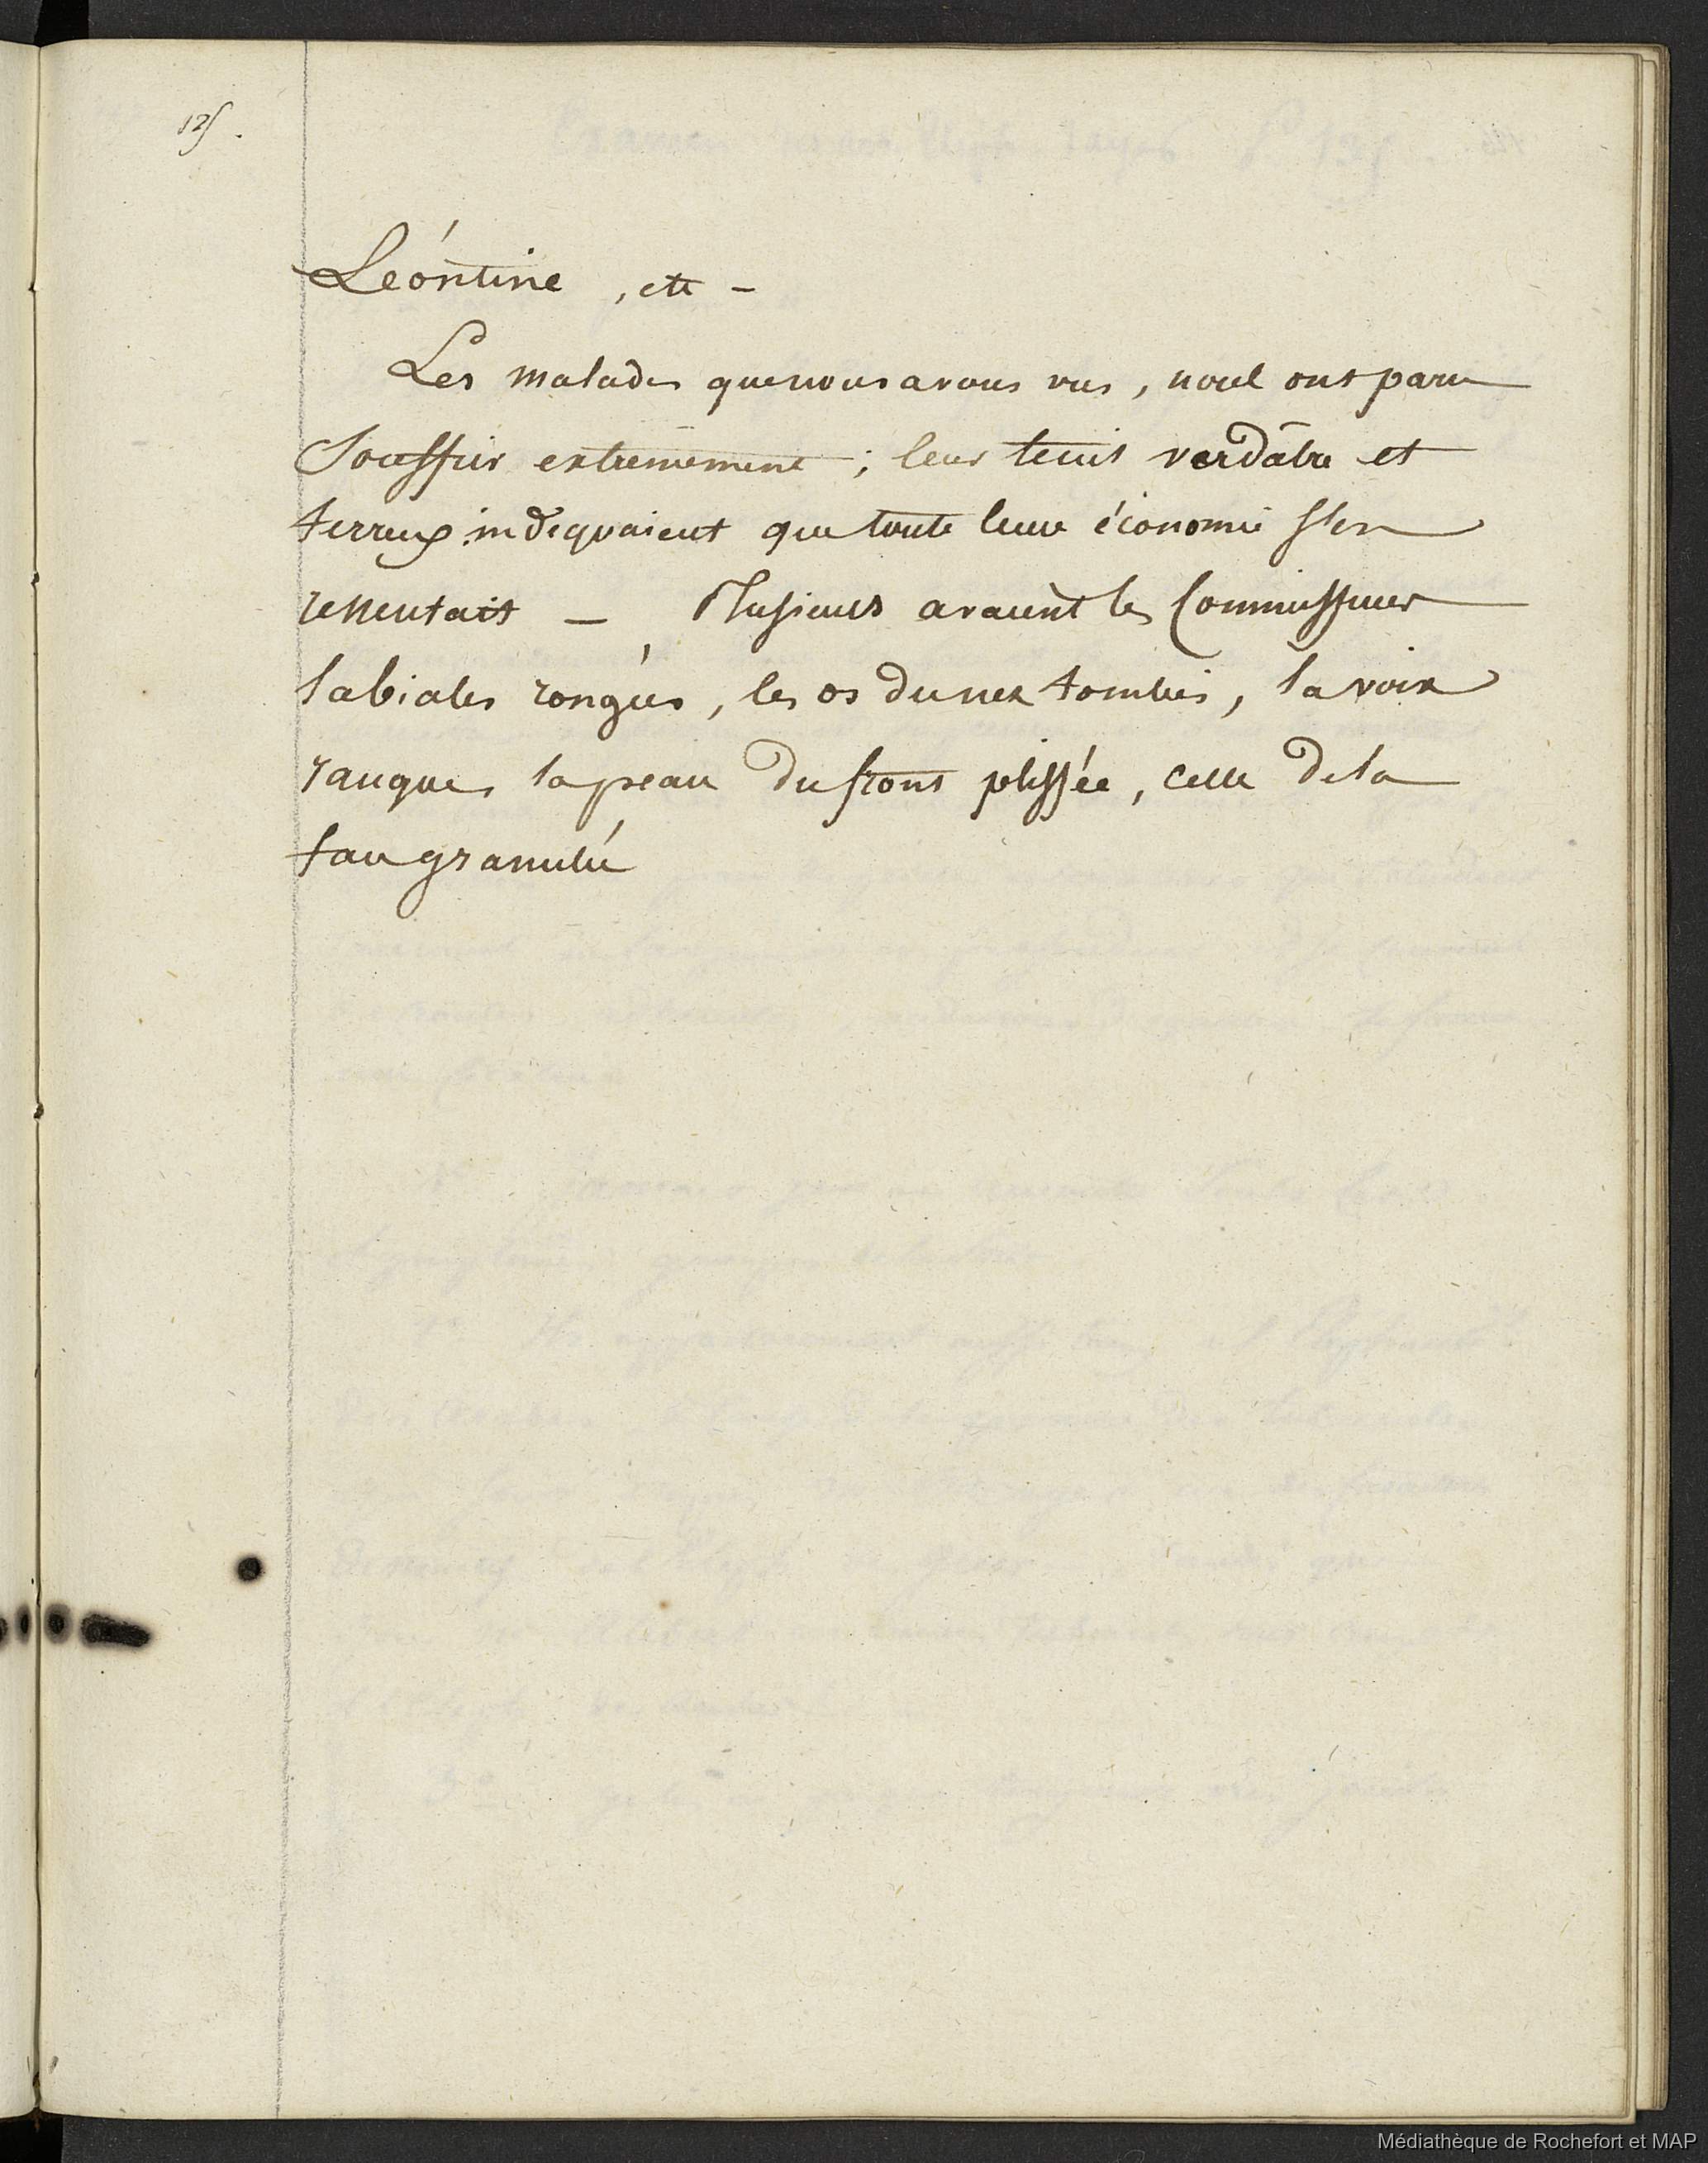 125.
Léontine, etc -
Les malades que nous avons vus, nous ont paru
Souffrir extremement ; leur teint verdâtre et
terreux indiquaient que toute leur économie s'en
ressentait — Plusieurs avaient les Commissures
labiales rongées, les os du nez tombés, la voix
rauque, la peau du front plissée, celle de la
face granulée
Médiathèque de Rochefort et MAP